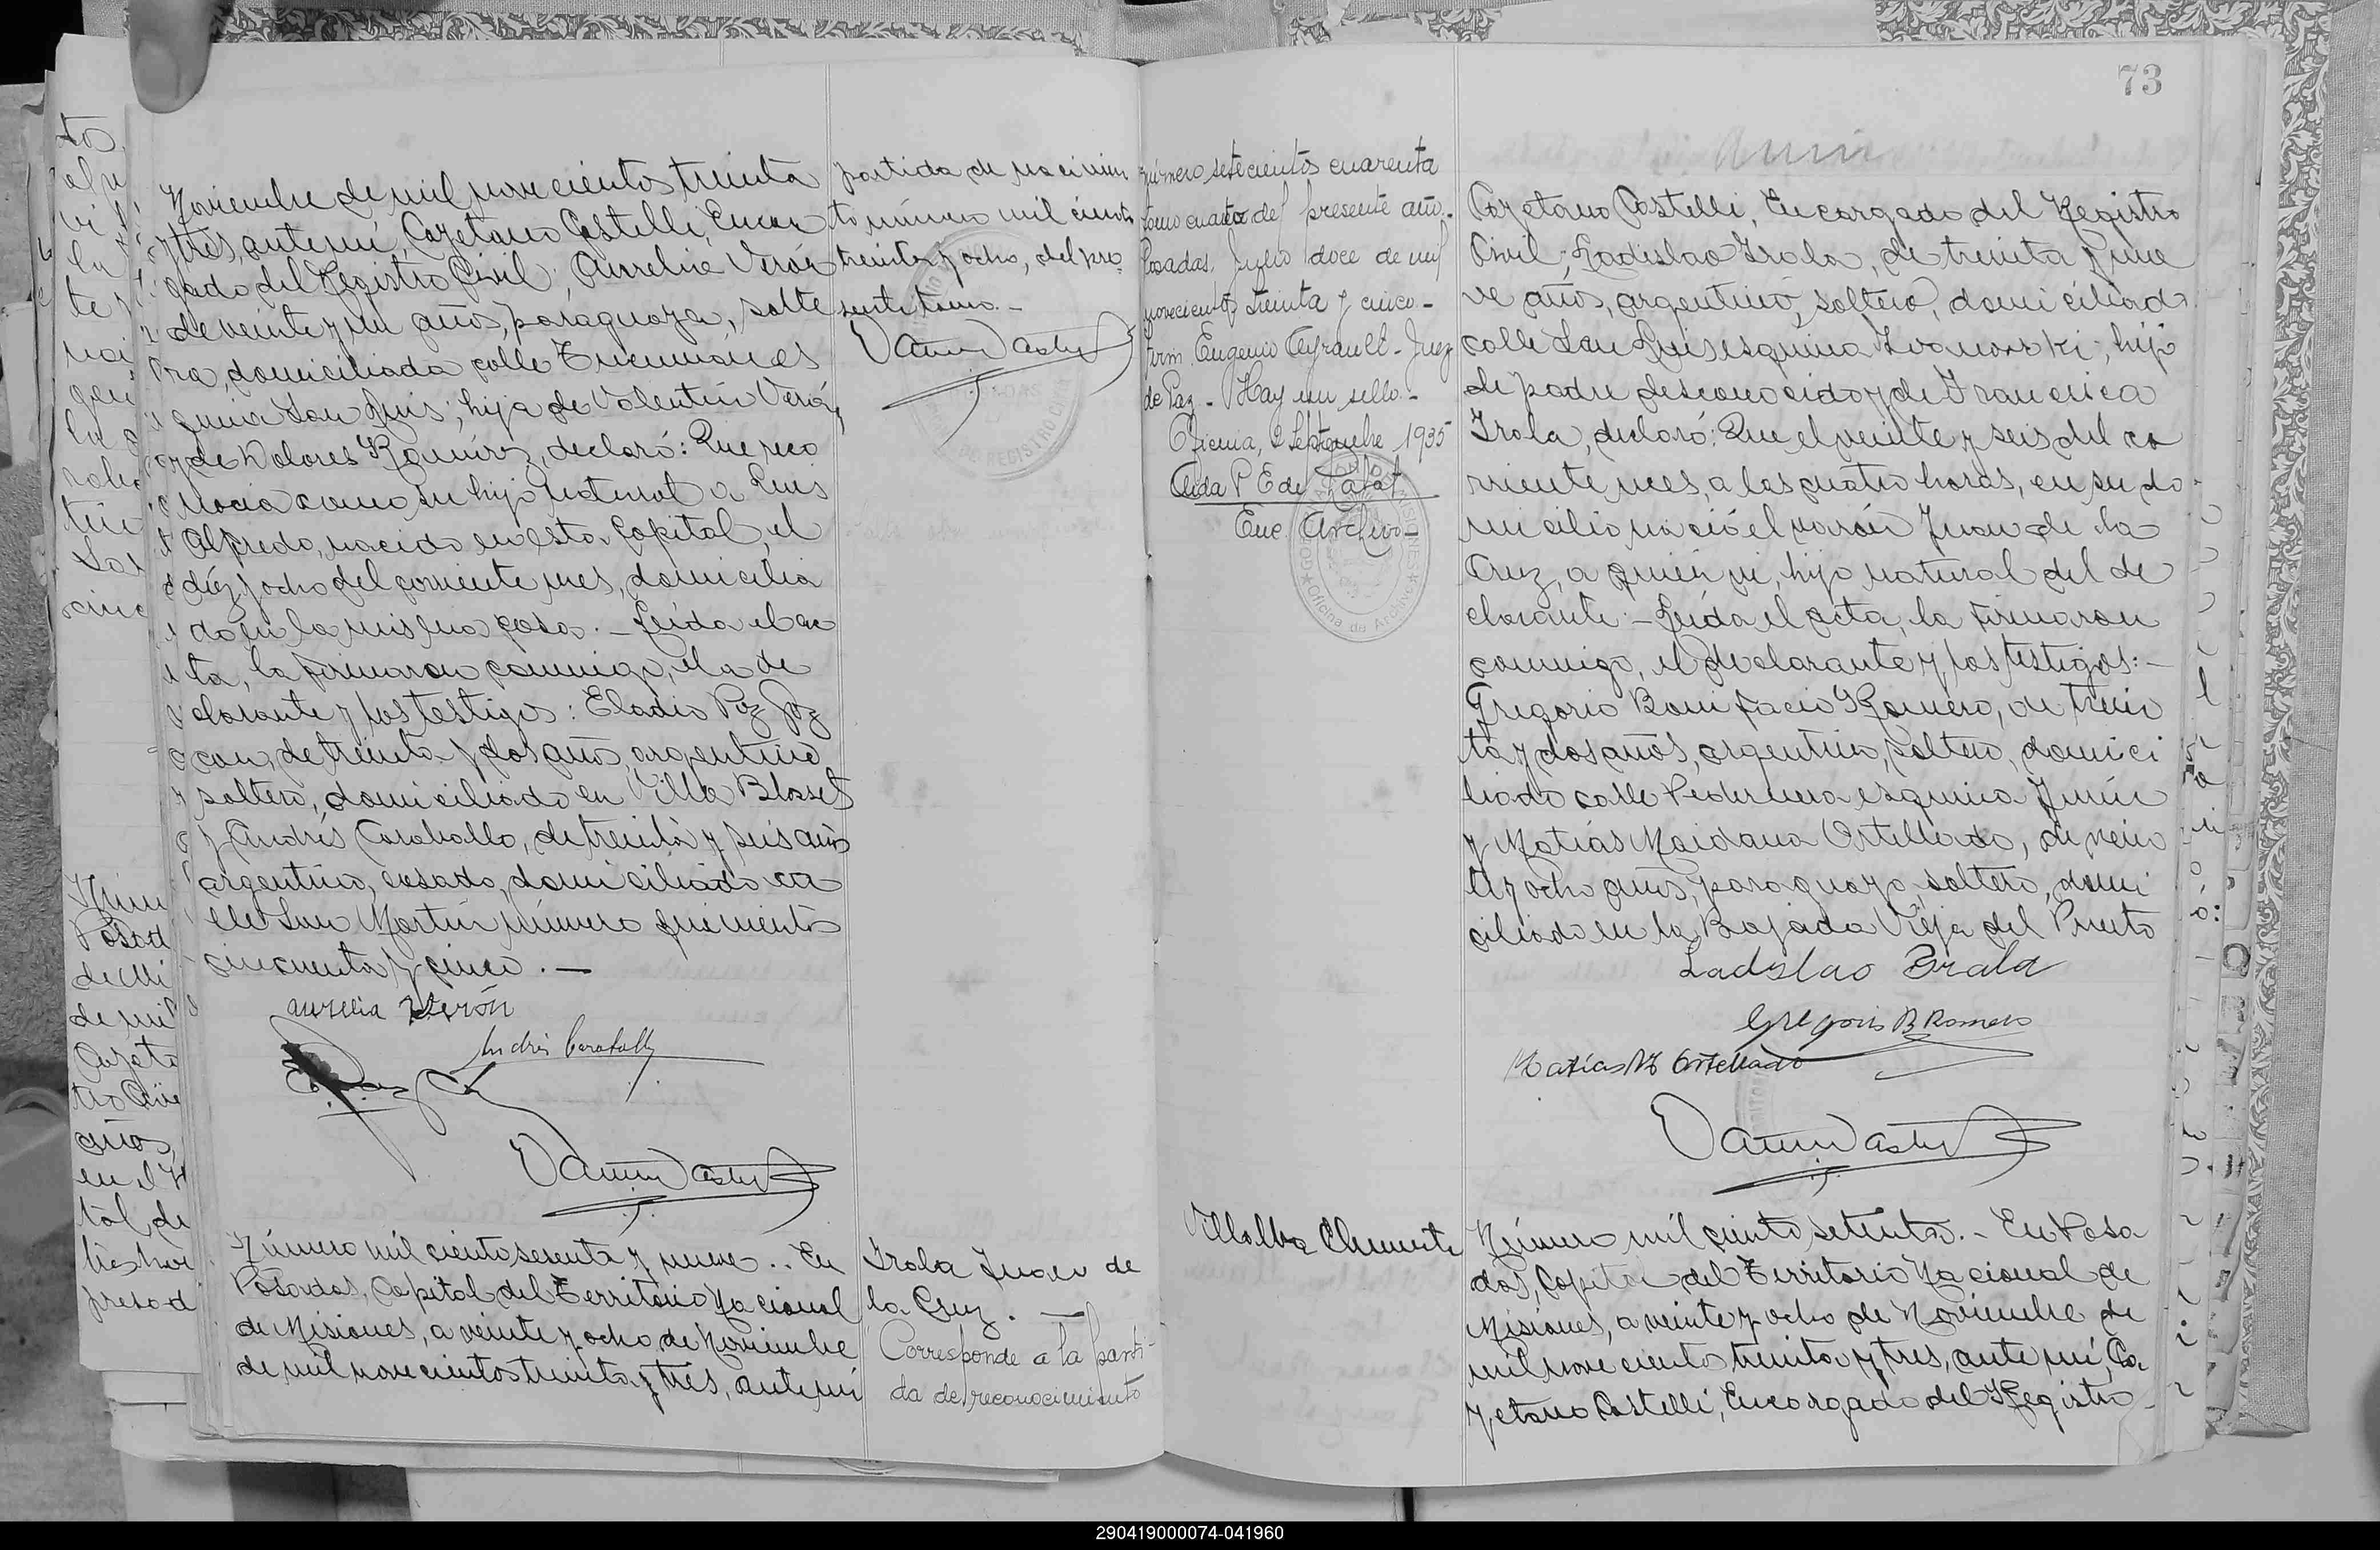 Noviembre de mil novecientos treinta
y tres, ante mí, Cayetano Castelli, Encar
gado del Registro Civil; Aurelia Verón
de veinte y un años, paraguaya, solte
ra, domiciliada calle Tucumán es
quina San Luis; hija de Valentín Verón,
y de Dolores Ramírez, declaró: Que reco
nocía como su hijo natural a Luis
Alfredo, nacido en esta Capital, el
diez y ocho del corriente mes, domicilia
do en la misma casa. - Leída el ac
ta, la firmaron conmigo, la de
clarante y los testigos: Eladio Paz
de treinta y dos años, argentino
soltero, domiciliado en Villa Blosset
y Andrés Caraballo, de treinta y seis años
argentino, casado, domiciliado ca
lle San Martín número quinientos
cincuenta y cinco. -
Aurelia Verón
Andrés Caraballo
Número mil ciento sesenta y nueve. - En
Posadas, Capital del Territorio Nacional
de Misiones, a veinte y ocho de Noviembre
de mil novecientos treinta y tres, ante mí
partida de nacimien
to número mil ciento
treinta y ocho, del pre
sente tomo. -
Irala Juan de
la Cruz. -
Corresponde a la parti-
da de reconocimiento
número setecientos cuarenta
tomo cuarto del presente año. -
Posadas, Julio doce de mil
novecientos treinta y cinco. -
firm. Eugenio Ayrault - Juez
de Paz - Hay un sello. -
Oficina, 2 Septiembre 1935
Aida P E de
Enc. Archivo -
Oficina de Archivo
Villalba Clemente
73
Cayetano Castelli, Encargado del Registro
Civil; Ladislao Irala, de treinta y nue
ve años, argentino, soltero, domiciliado
calle San Luis esquina Ivanowski; hijo
de padre desconocido y de Francisca
Irala, declaró: Que el veinte y seis del co
rriente mes, a las cuatro horas, en su do
micilio nació el varón Juan de la
Cruz, a quien vi, hijo natural del de
clarante - Leída el acta, la firmaron
conmigo, el declarante y los testigos: -
Gregorio Bonifacio Romero, de trein
ta y dos años, argentino, soltero, domici
liado calle Pedernera esquina Junín
y Matías Maidana Ortellado, de vein
te y ocho años, paraguayo, soltero, domi
ciliado en la Bajada Vieja del Puerto
Ladislao Irala
Gregorio B Romero
Matías M Ortellado
Número mil ciento setenta. - En Posa
das, Capital del Territorio Nacional de
Misiones, a veinte y ocho de Noviembre de
mil novecientos treinta y tres, ante mí, Ca
yetano Castelli, Encargado del Registro
290419000074-041960